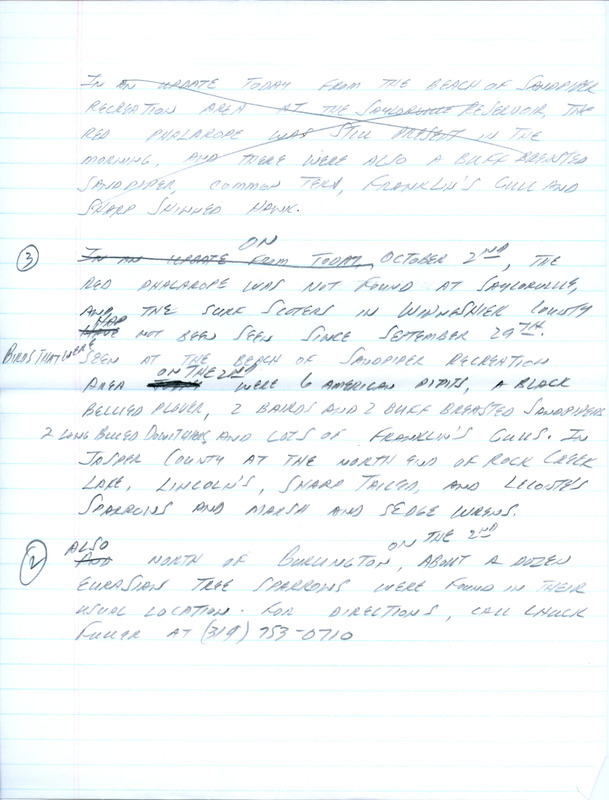 IN AN UPDATE TODAY FROM THE BEACH OF SANDPIPER
RECREATION AREA AT THE SAYLORVILLE RESERVOIR, THE
RED PHALAROPE WAS STILL PRESENT IN THE
MORNING, AND THERE WERE ALSO A BUFF BREASTED
SANDPIPER, COMMON TERN, FRANKLIN'S GULL AND
SHARP SHINNED HAWK.
ON
3 IN AN UPDATE FROM TODAY, OCTOBER 2ND, THE
RED PHALAROPE WAS NOT FOUND AT SAYLORVILLE,
AND THE SURF SCOTERS IN WINNESHIEK COUNTY
HAD
HAVE NOT BEEN SEEN SINCE SEPTEMBER 29TH.
BIRDS THAT WERE SEEN AT THE BEACH OF SANDPIPER RECREATION
ON THE 2ND
AREA WERE 6 AMERICAN PIPITS, A BLACK
BELLIED PLOVER, 2 BAIRDS AND 2 BUFF BREASTED SANDPIPERS
2 LONG BILLED DOWITCHERS, AND LOTS OF FRANKLIN'S GULLS. IN
JASPER COUNTY AT THE NORTH END OF ROCK CREEK
LAKE, LINCOLN'S, SHARP TAILED, AND LECONTE'S
SPARROWS AND MARSH AND SEDGE WRENS.
ALSO ON THE 2ND
2 AND NORTH OF BURLINGTON, ABOUT A DOZEN
EURASIAN TREE SPARROWS WERE FOUND IN THEIR
USUAL LOCATION. FOR DIRECTIONS, CALL CHUCK
FULLER AT (319) 753-0710